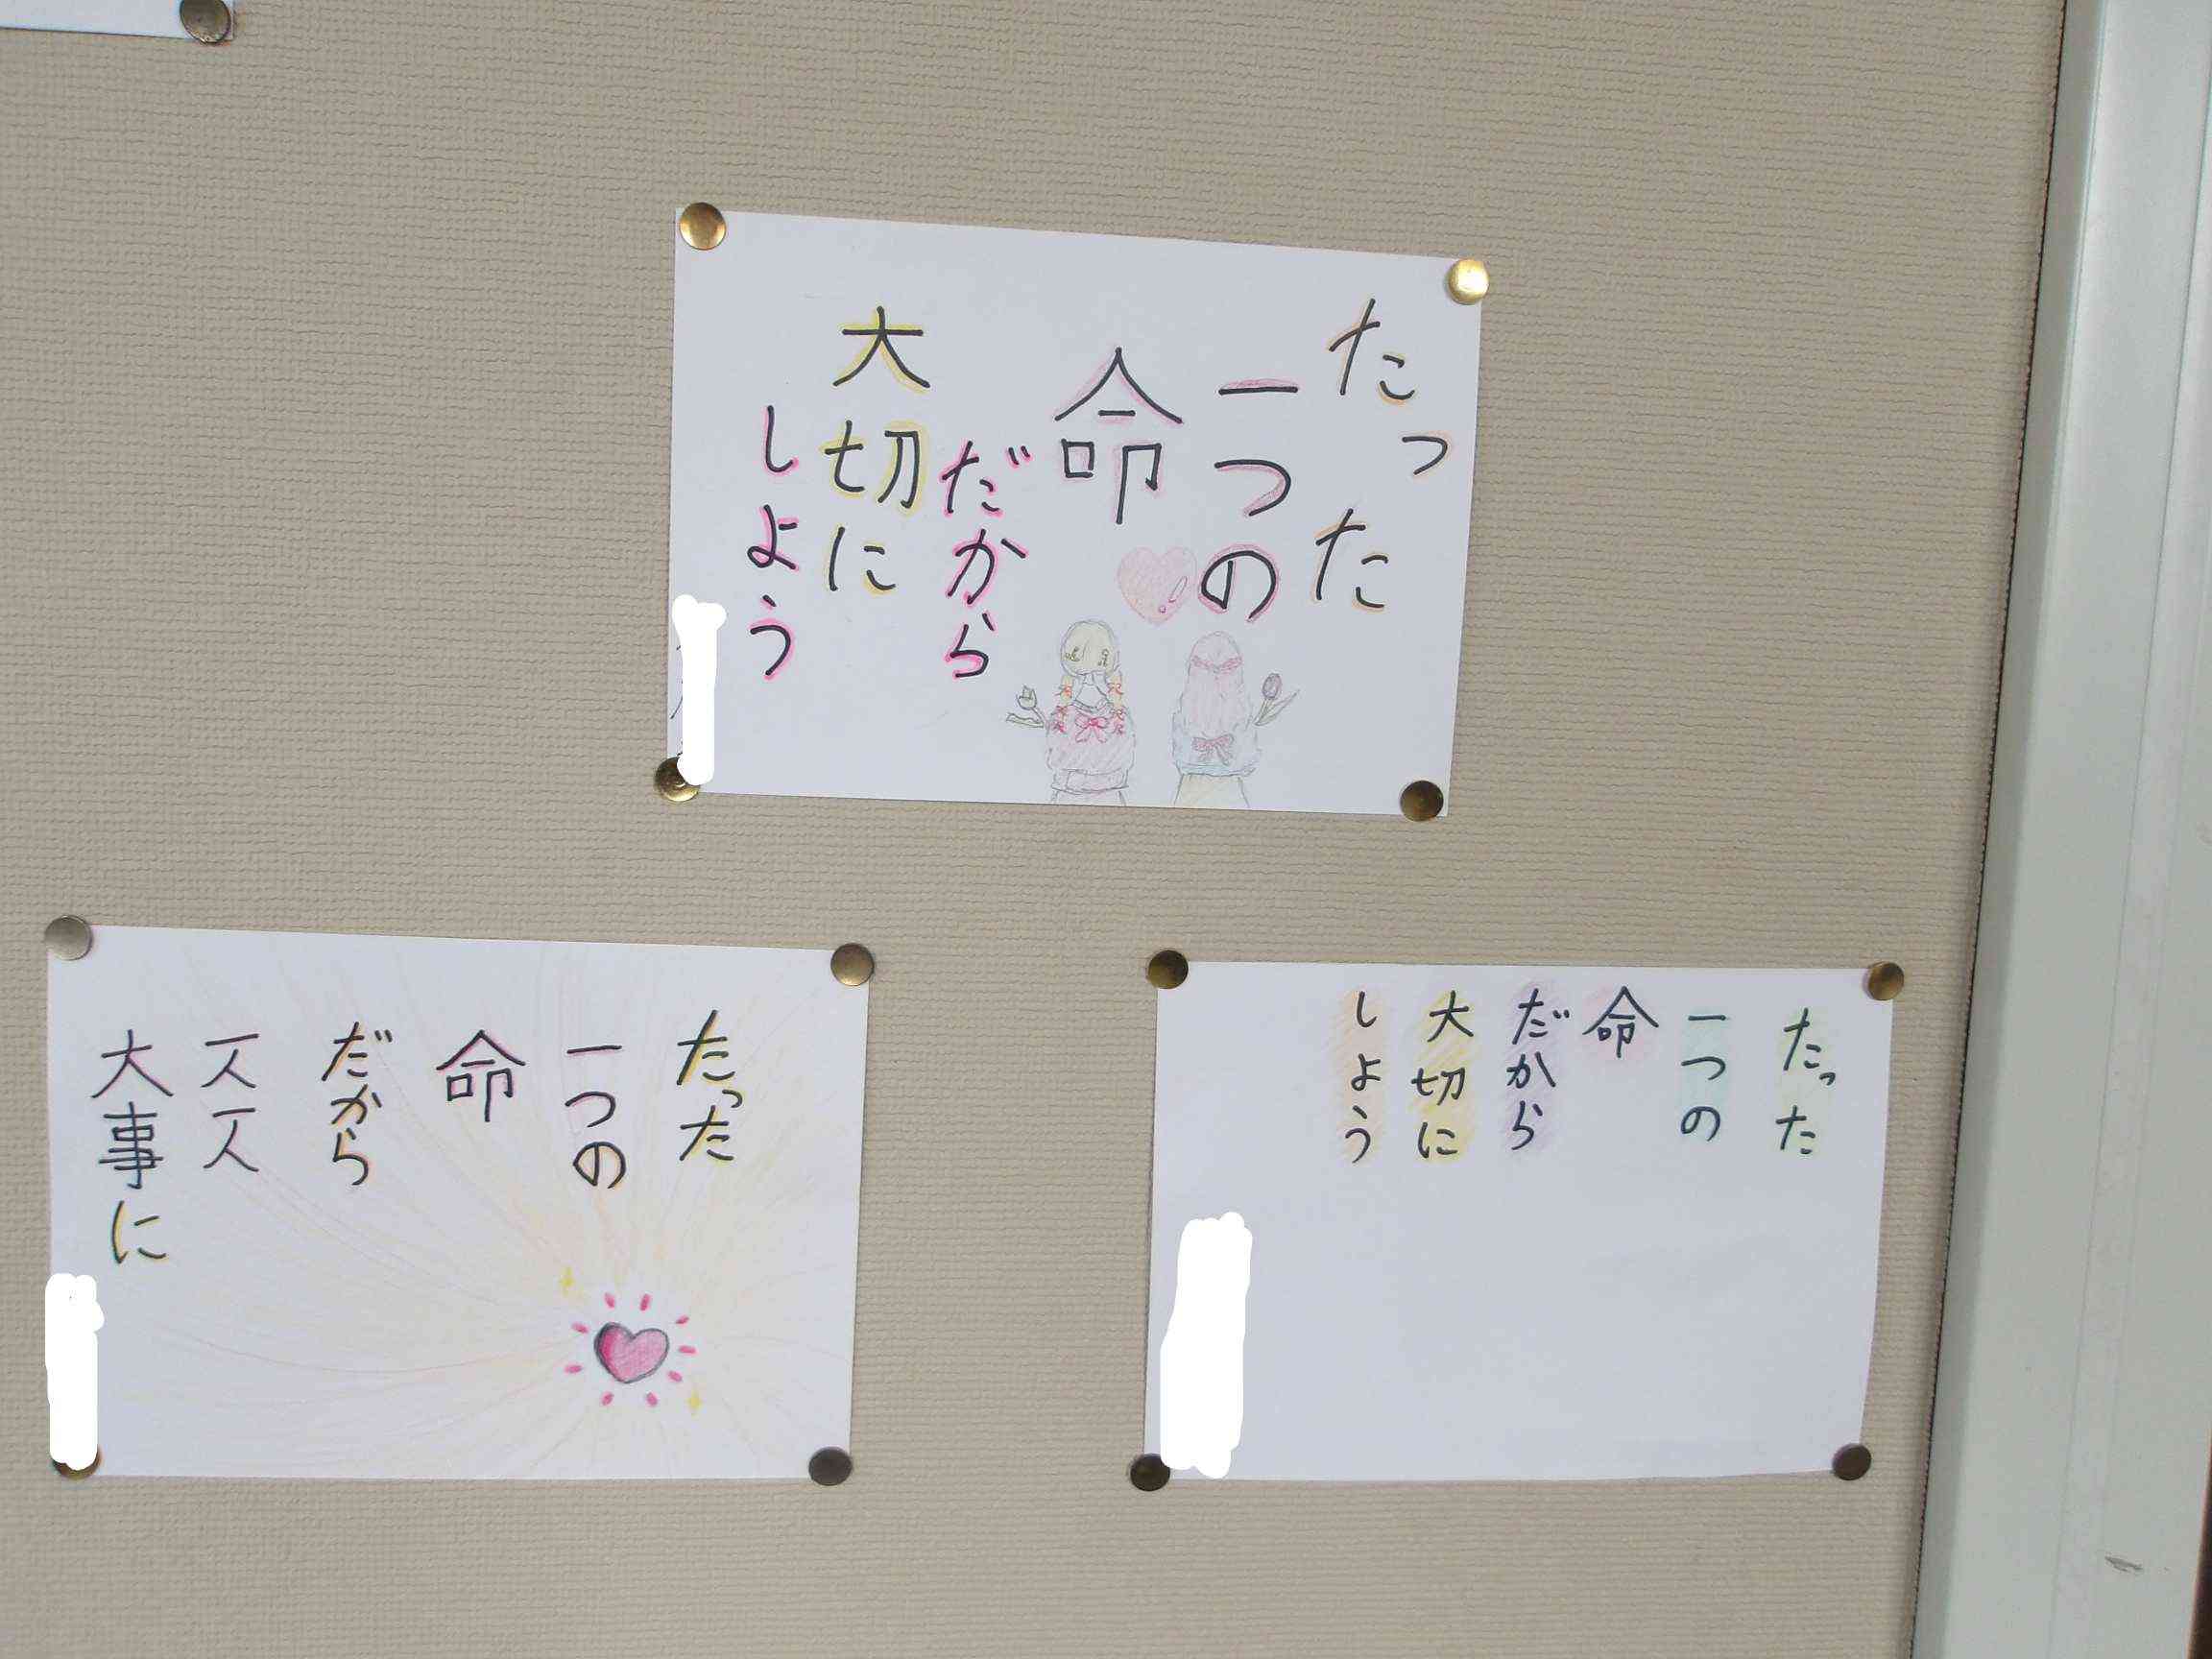 たった
一つの
命
だから
大切に
しよう
たった
一つの
命
だから
一人一人
大事に
たった
一つの
命
だから
大切に
しよう